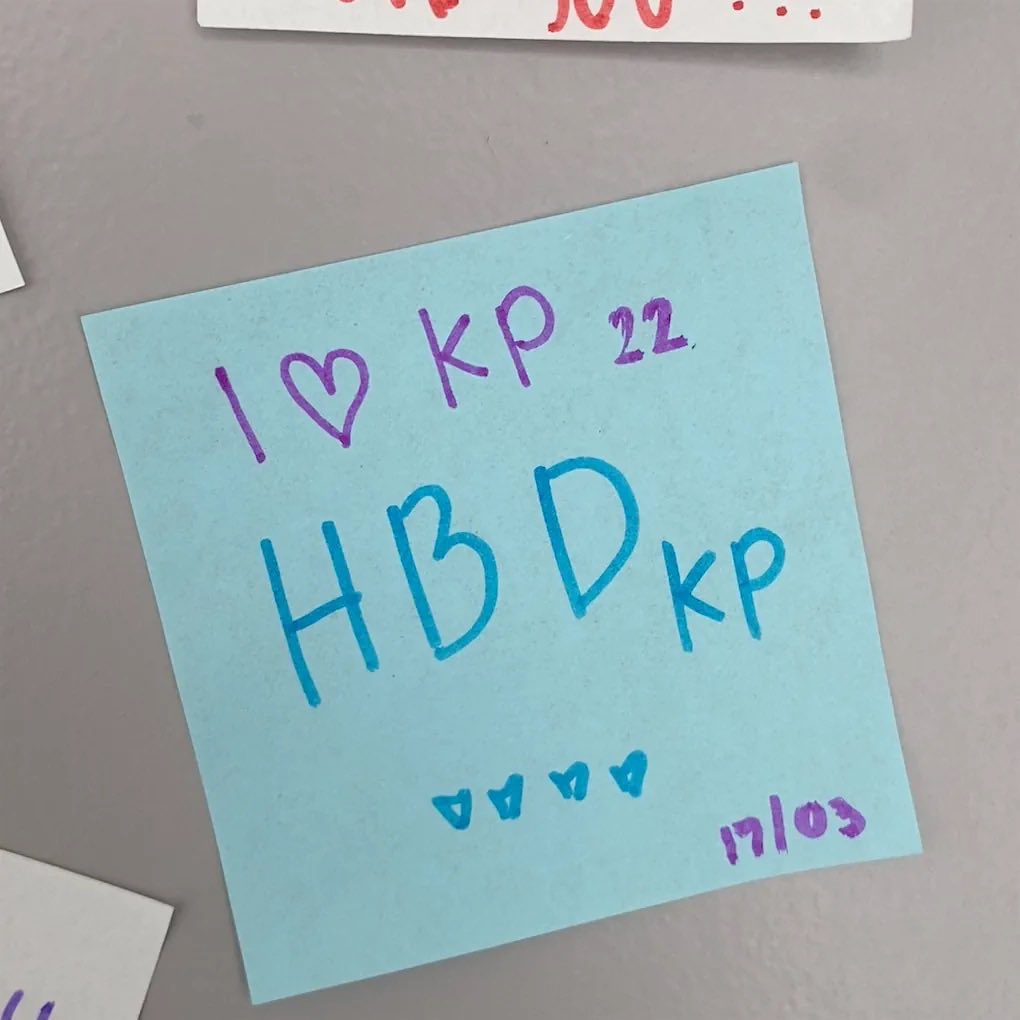 I ♡ KP 22
HBD KP
17/03